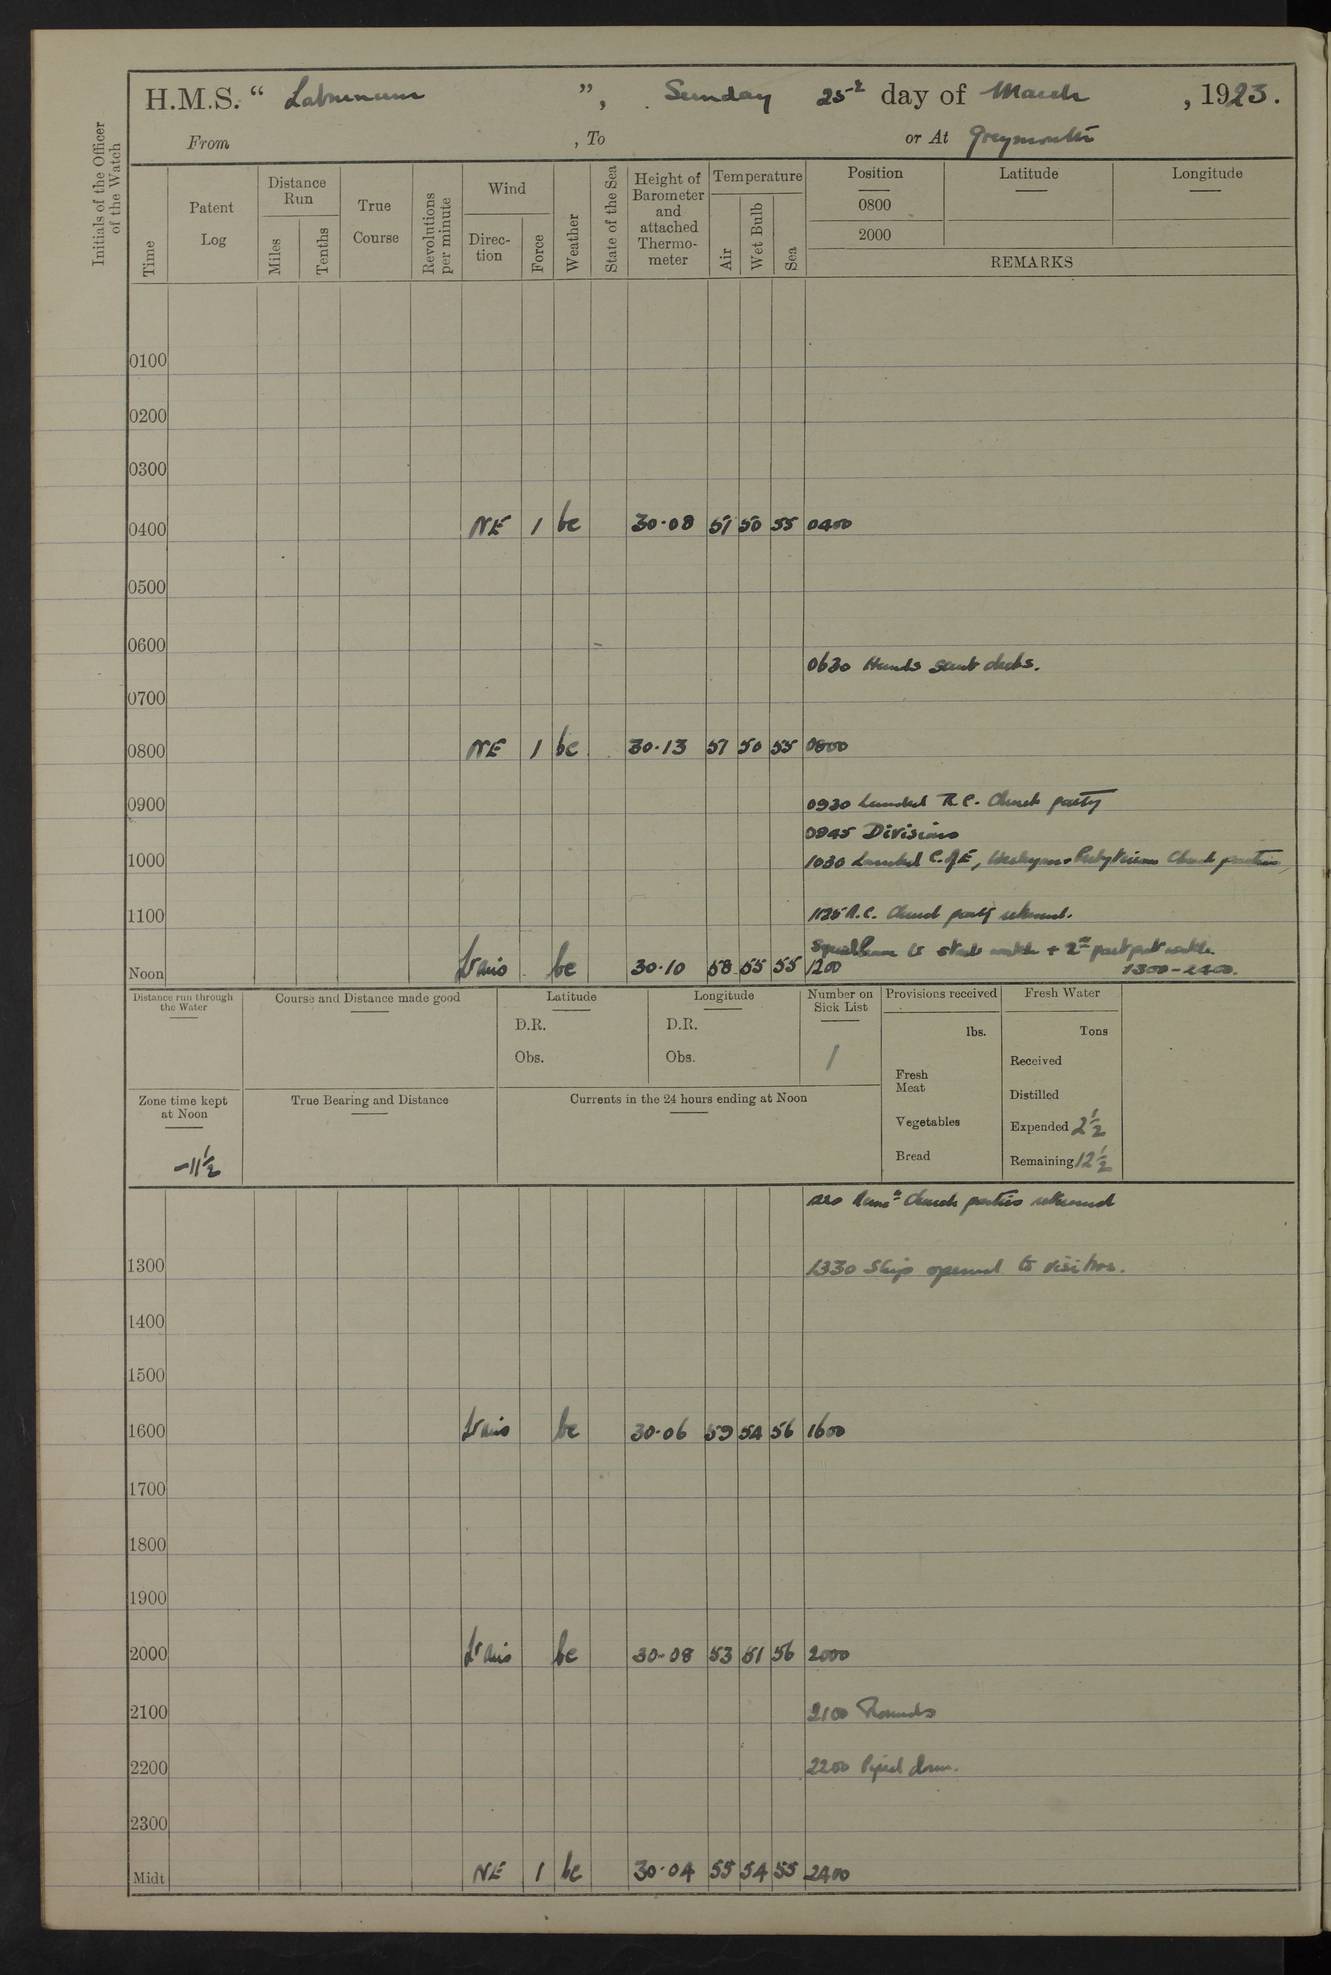 H.M.S. “ Laburnum ”, Sunday 25th day of March , 1923.
From , To or At Greymouth
Initials of the Officer of the Watch
Time
Patent Log
Distance Run
Miles
Tenths
True Course
Revolutions per minute
Wind
Direc-tion
Force
Weather
State of the Sea
Height of Barometer and attached Thermo-meter
Temperature
Air
Wet Bulb
Sea
Position Latitude Longitude
0800
2000
REMARKS
0100
0200
0300
0400 NE 1 bc 30·08 51 50 55 0400
0500
0600
0630 Hands scrub decks.
0700
0800 NE 1 bc 30·13 57 50 55 0800
0900
0930 Landed R.C. Church party
0945 Divisions
1000
1030 Landed C. of E, Wesleyan + Presbyterian Church parties
1100
1125 R.C. Church party returned.
leave to starb watch + 2nd part port watch
Noon Lt airs bc 30·10 58 55 55 1200 1300-2400.
Distance run through the Water
Course and Distance made good
Latitude
D.R.
Obs.
Longitude
D.R.
Obs.
Number on Sick List
1
Provisions received
lbs.
Fresh Meat
Vegetables
Bread
Fresh Water
Tons
Received
Distilled
Expended 2½
Remaining 12½
Zone time kept at Noon
-11½
True Bearing and Distance
Currents in the 24 hours ending at Noon
Church parties returned
1300
1330 Ship opened to visitors.
1400
1500
1600 Lt airs bc 30·06 59 54 56 1600
1700
1800
1900
2000 Lt airs bc 30·08 53 51 56 2000
2100
2100 Rounds
2200
2200 Piped down.
2300
Midt NE 1 bc 30·04 55 54 55 2400